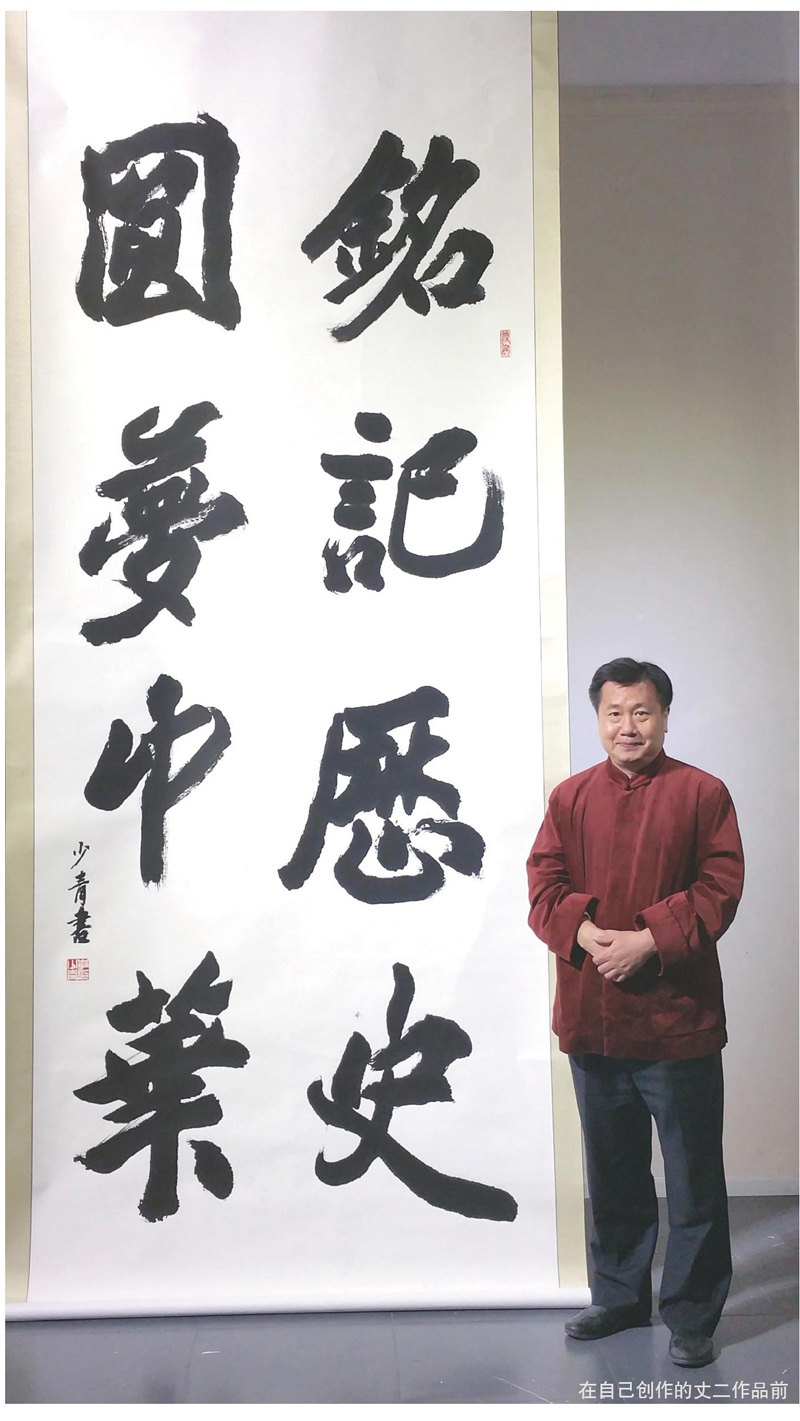 銘記歷史
圓夢中華
少青書
在自己创作的丈二作品前